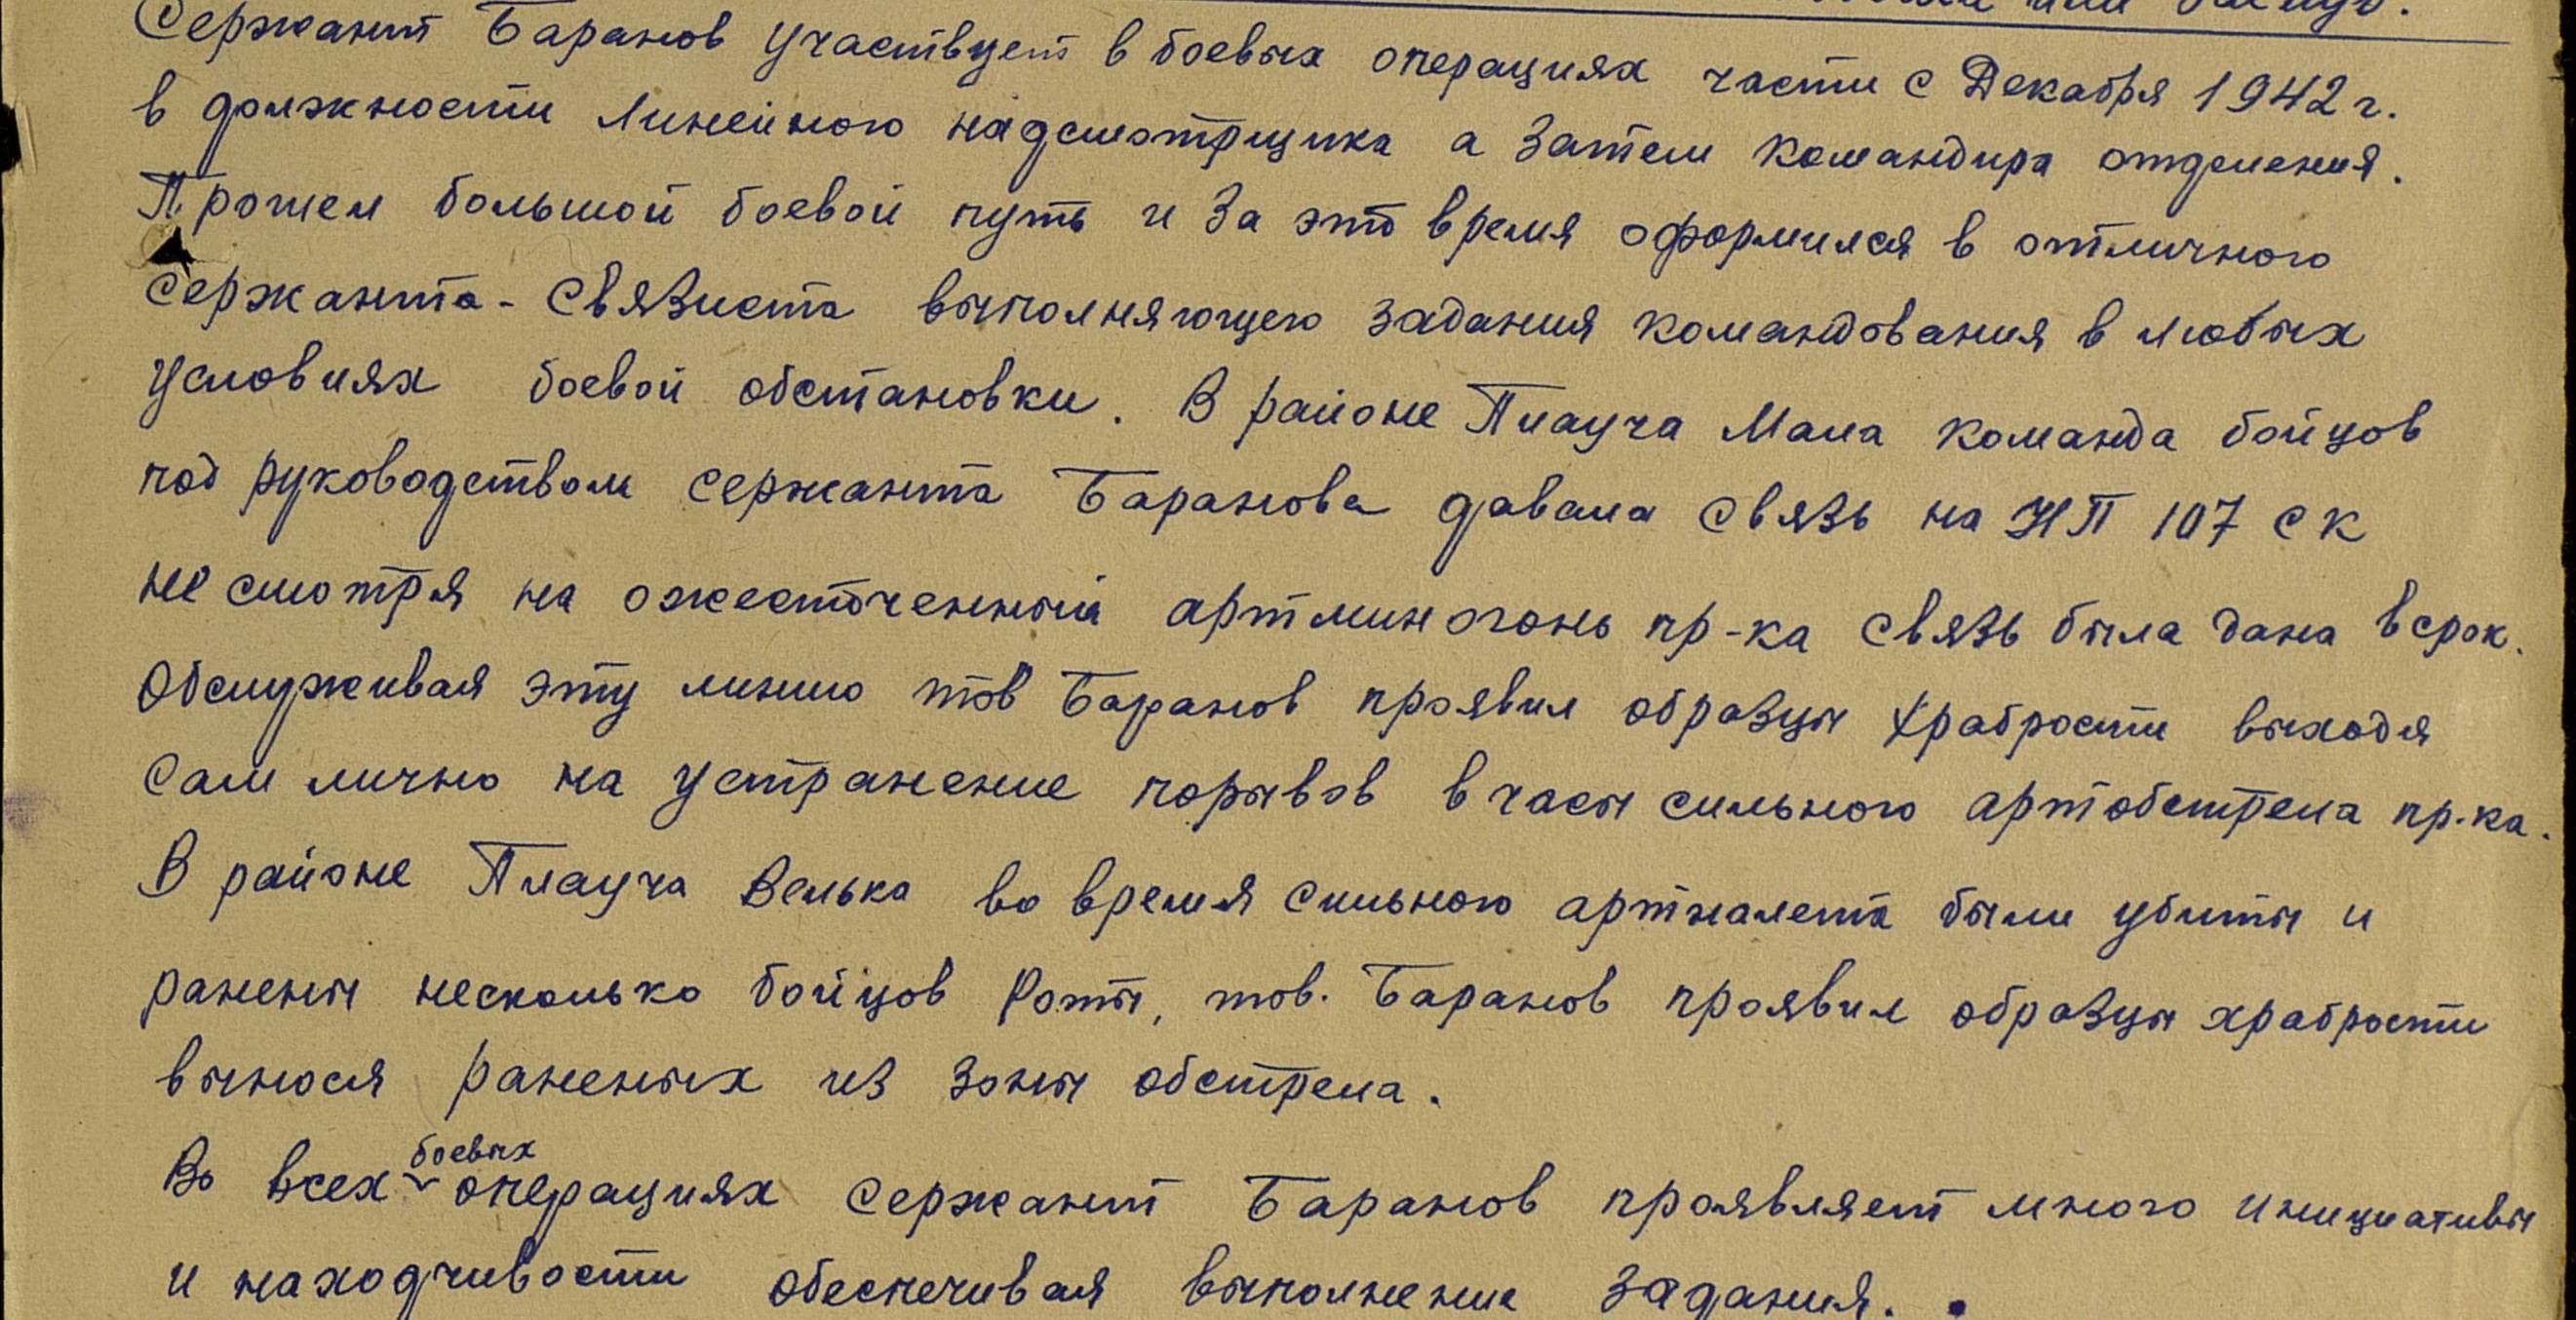 или
Сержант Баранов участвует в боевых операциях части с Декабря 1942 г.
в должности линейного надсмотрщика а затем командира отделения.
Прошел большой боевой путь и за это время оформился в отличного
сержанта - связиста выполняющего задания командования в любых
условиях боевой обстановки. В районе Плауча Мала команда бойцов
под руководством сержанта Баранова давала связь на НП 107 ск
не смотря на ожесточенный артминогонь пр-ка связь была дана в срок.
Обслуживая эту линию тов Баранов проявил образцы храбрости выходя
сам лично на устранение порывов в часы сильного артобстрела пр-ка.
В районе Плауча Велька во время сильного артналета были убиты и
ранены несколько бойцов роты, тов. Баранов проявил образцы храбрости
вынося раненых из зоны обстрела.
Во всех боевых операциях сержант Баранов проявляет много инициативы
и находчивости обеспечивая выполнение задания.